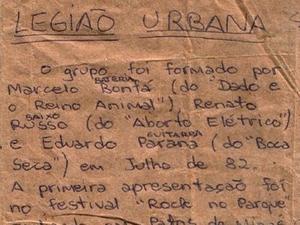 LEGIÃO URBANA
O grupo foi formado por
BATERIA
Marcelo Bonfá (do "Dado e
o Reino Animal"), Renato
BAIXO
Russo (do "Aborto Elétrico")
GUITARRA
e Eduardo Paraná (do "Boca
Seca") em Julho de 82.
A primeira apresentação foi
no festival "Rock no Parque"
Patos de Minas